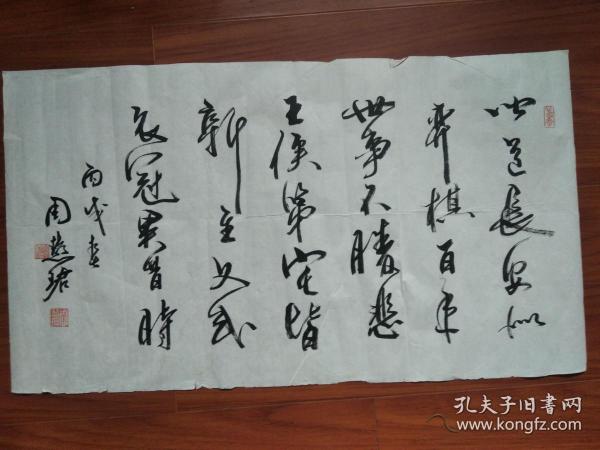 聞道長安似
弈棋百年
世事不勝悲
王侯第宅皆
新主文武
衣冠異昔時
丙戌春
周慧珺
孔夫子旧书网
www.kongfz.com